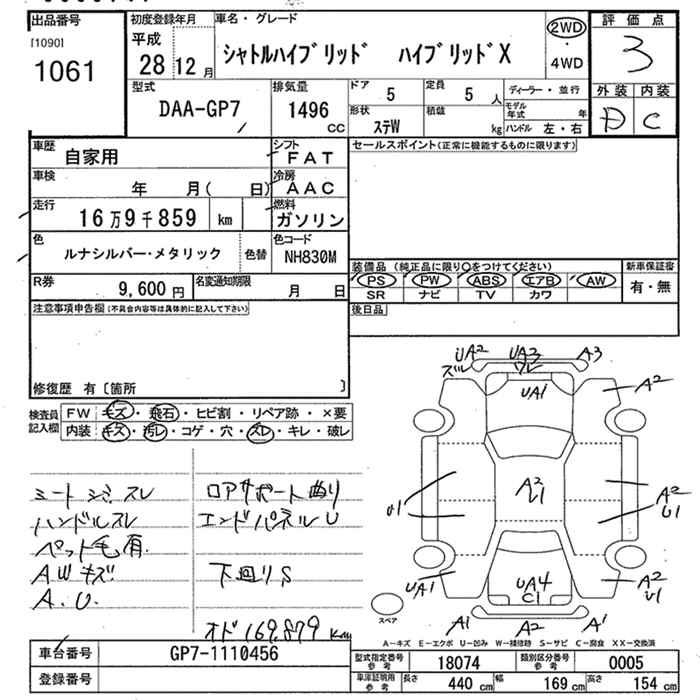 出品番号
[1090]
1061
初度登録年月
平成
28 12月
車名・グレード
シャトルハイブリッド ハイブリッドX
2WD
・
4WD
評価点
3
外装 内装
D C
型式
DAA-GP7
排気量
1496
CC
ドア
5
定員
5 人
形状
ステW
積載
kg
ディーラー・並行
モデル年式 年
ハンドル 左・右
車歴
自家用
シフト
FAT
車検
年 月( 日)
冷房
AAC
走行
16万9千859 km
燃料
ガソリン
色
ルナシルバー・メタリック
色替
色コード
NH830M
R券
9,600 円
名変通知期限
月 日
セールスポイント(正常に機能するものに限ります)
装備品 (純正品に限り○をつけてください)
PS PW ABS エアB AW
SR ナビ TV カワ
新車保証書
有・無
後日品
注意事項申告欄(不具合内容等は具体的に記入して下さい)
修復歴 有〔箇所 〕
検査員記入欄
FW キズ・飛石・ヒビ割・リペア跡・×要
内装 キズ・汚レ・コゲ・穴・スレ・キレ・破レ
シートシミ.スレ
ハンドルスレ
ペット毛有.
A.Wキズ
A.U.
ロアサポート曲り
エンドパネルU
下廻りS
オド169,879 Km
UA2 UA3 A3
ズレ ワレ
UA1
A2
A2
U1
U1
A2
U1
UA1
UA4
C1
A2
U1
A1 A2 A1
スペア
A−キズ E−エクボ U−凹み W−補修跡 S−サビ C−腐食 XX−交換済
車台番号
GP7-1110456
登録番号
型式指定番号 参考
18074
類別区分番号 参考
0005
車庫証明用 参考
長さ 440 cm
幅 169 cm
高さ 154 cm